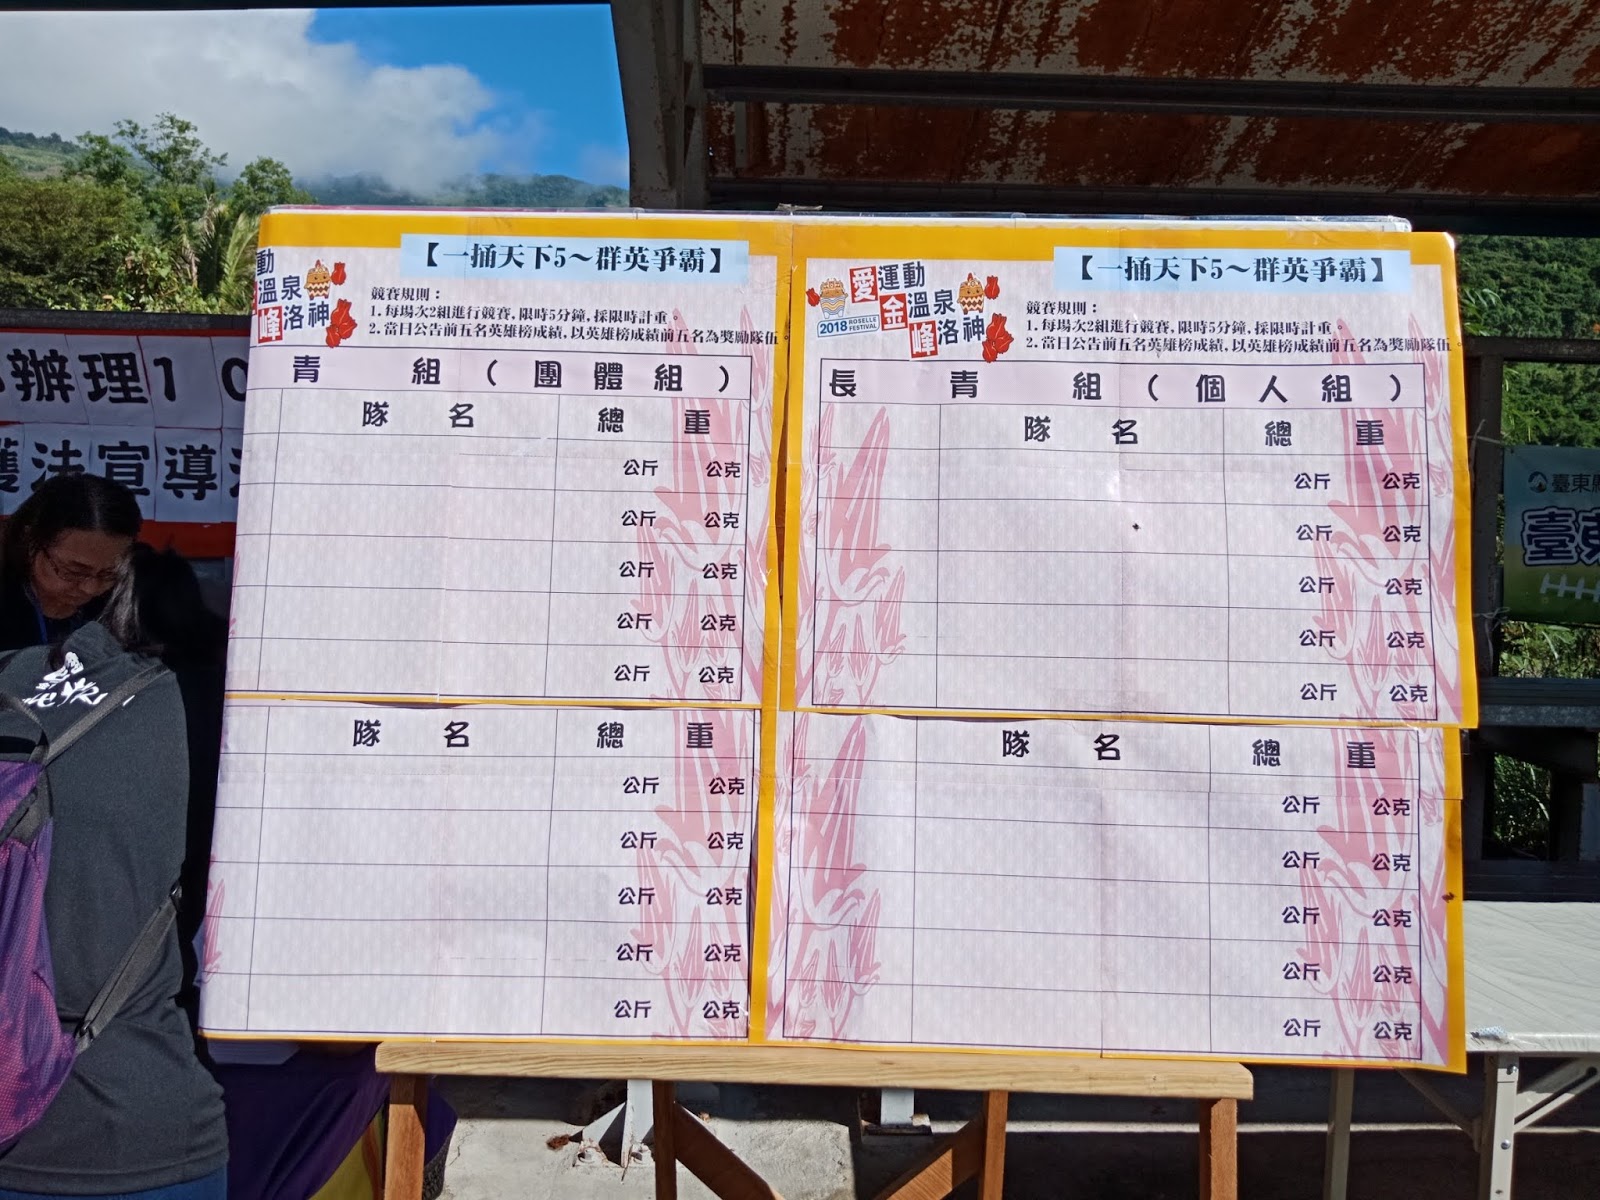 【一捅天下5～群英爭霸】
動
溫泉
峰洛神
競賽規則：
1.每場次2組進行競賽,限時5分鐘,採限時計重。
2.當日公告前五名英雄榜成績,以英雄榜成績前五名為獎勵隊伍。
青組(團體組)
隊名 總重
公斤 公克
公斤 公克
公斤 公克
公斤 公克
公斤 公克
隊名 總重
公斤 公克
公斤 公克
公斤 公克
公斤 公克
公斤 公克
【一捅天下5～群英爭霸】
愛運動
金溫泉
峰洛神
2018 ROSELLE FESTIVAL
競賽規則：
1.每場次2組進行競賽,限時5分鐘,採限時計重。
2.當日公告前五名英雄榜成績,以英雄榜成績前五名為獎勵隊伍。
長青組(個人組)
隊名 總重
公斤 公克
公斤 公克
公斤 公克
公斤 公克
公斤 公克
隊名 總重
公斤 公克
公斤 公克
公斤 公克
公斤 公克
公斤 公克
辦理10
護法宣導
臺東縣
臺東